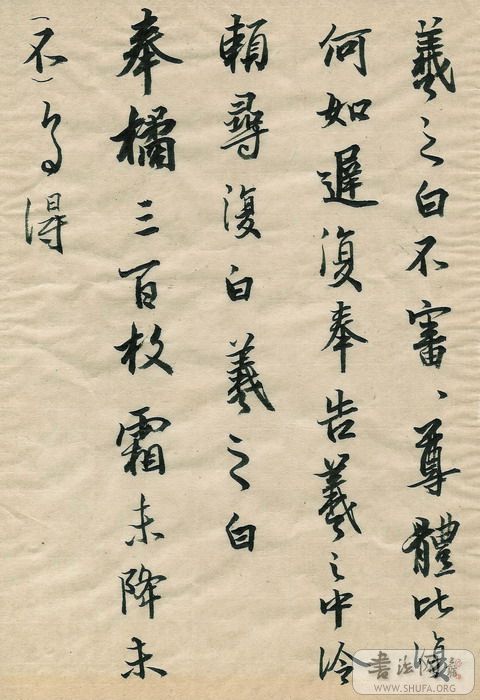 羲之白不審、尊體比復
何如遲復奉告羲之中冷
頼尋復白羲之白
奉橘三百枚霜未降未
(不)可得
書法
WWW.SHUFA.ORG